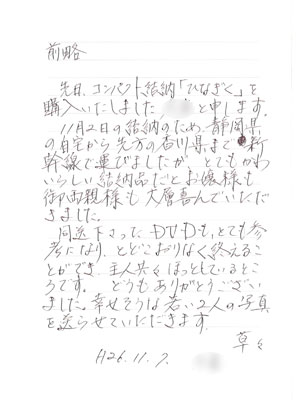 前略
先日、コンパクト結納「ひなぎく」を
購入いたしました と申します。
11月2日の結納のため、静岡県
の自宅から先方の香川県まで新
幹線で運びましたが、とてもかわ
いらしい結納品だとお嬢様も
御両親様も大層喜んでいただ
きました。
同送下さったDVDも、とても参
考になり、とどこおりなく終えるこ
とができ、主人共々ほっとしているとこ
ろです。 どうもありがとうござい
ました。幸せそうな若い2人の写真
を送らせていただきます。
草々
H26.11.7.